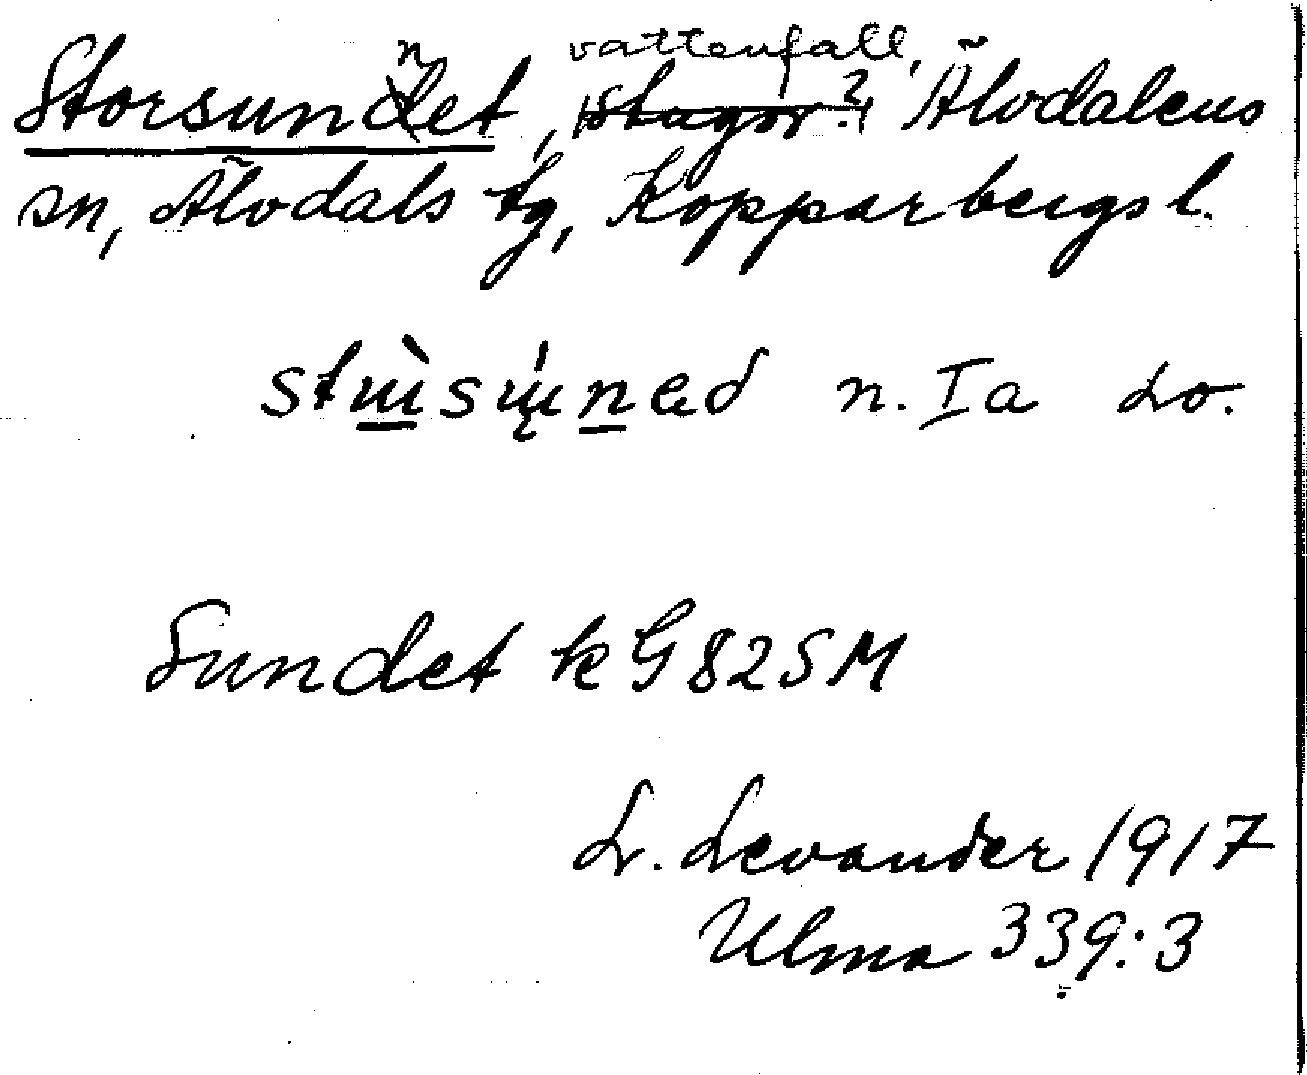 Storsunnet, vattenfall, Älvdalens
sn, Älvdals tg, Kopparbergs l.
n. Ia Lo.
Sundet k G82SM
L. Levander 1917
Ulma 339:3